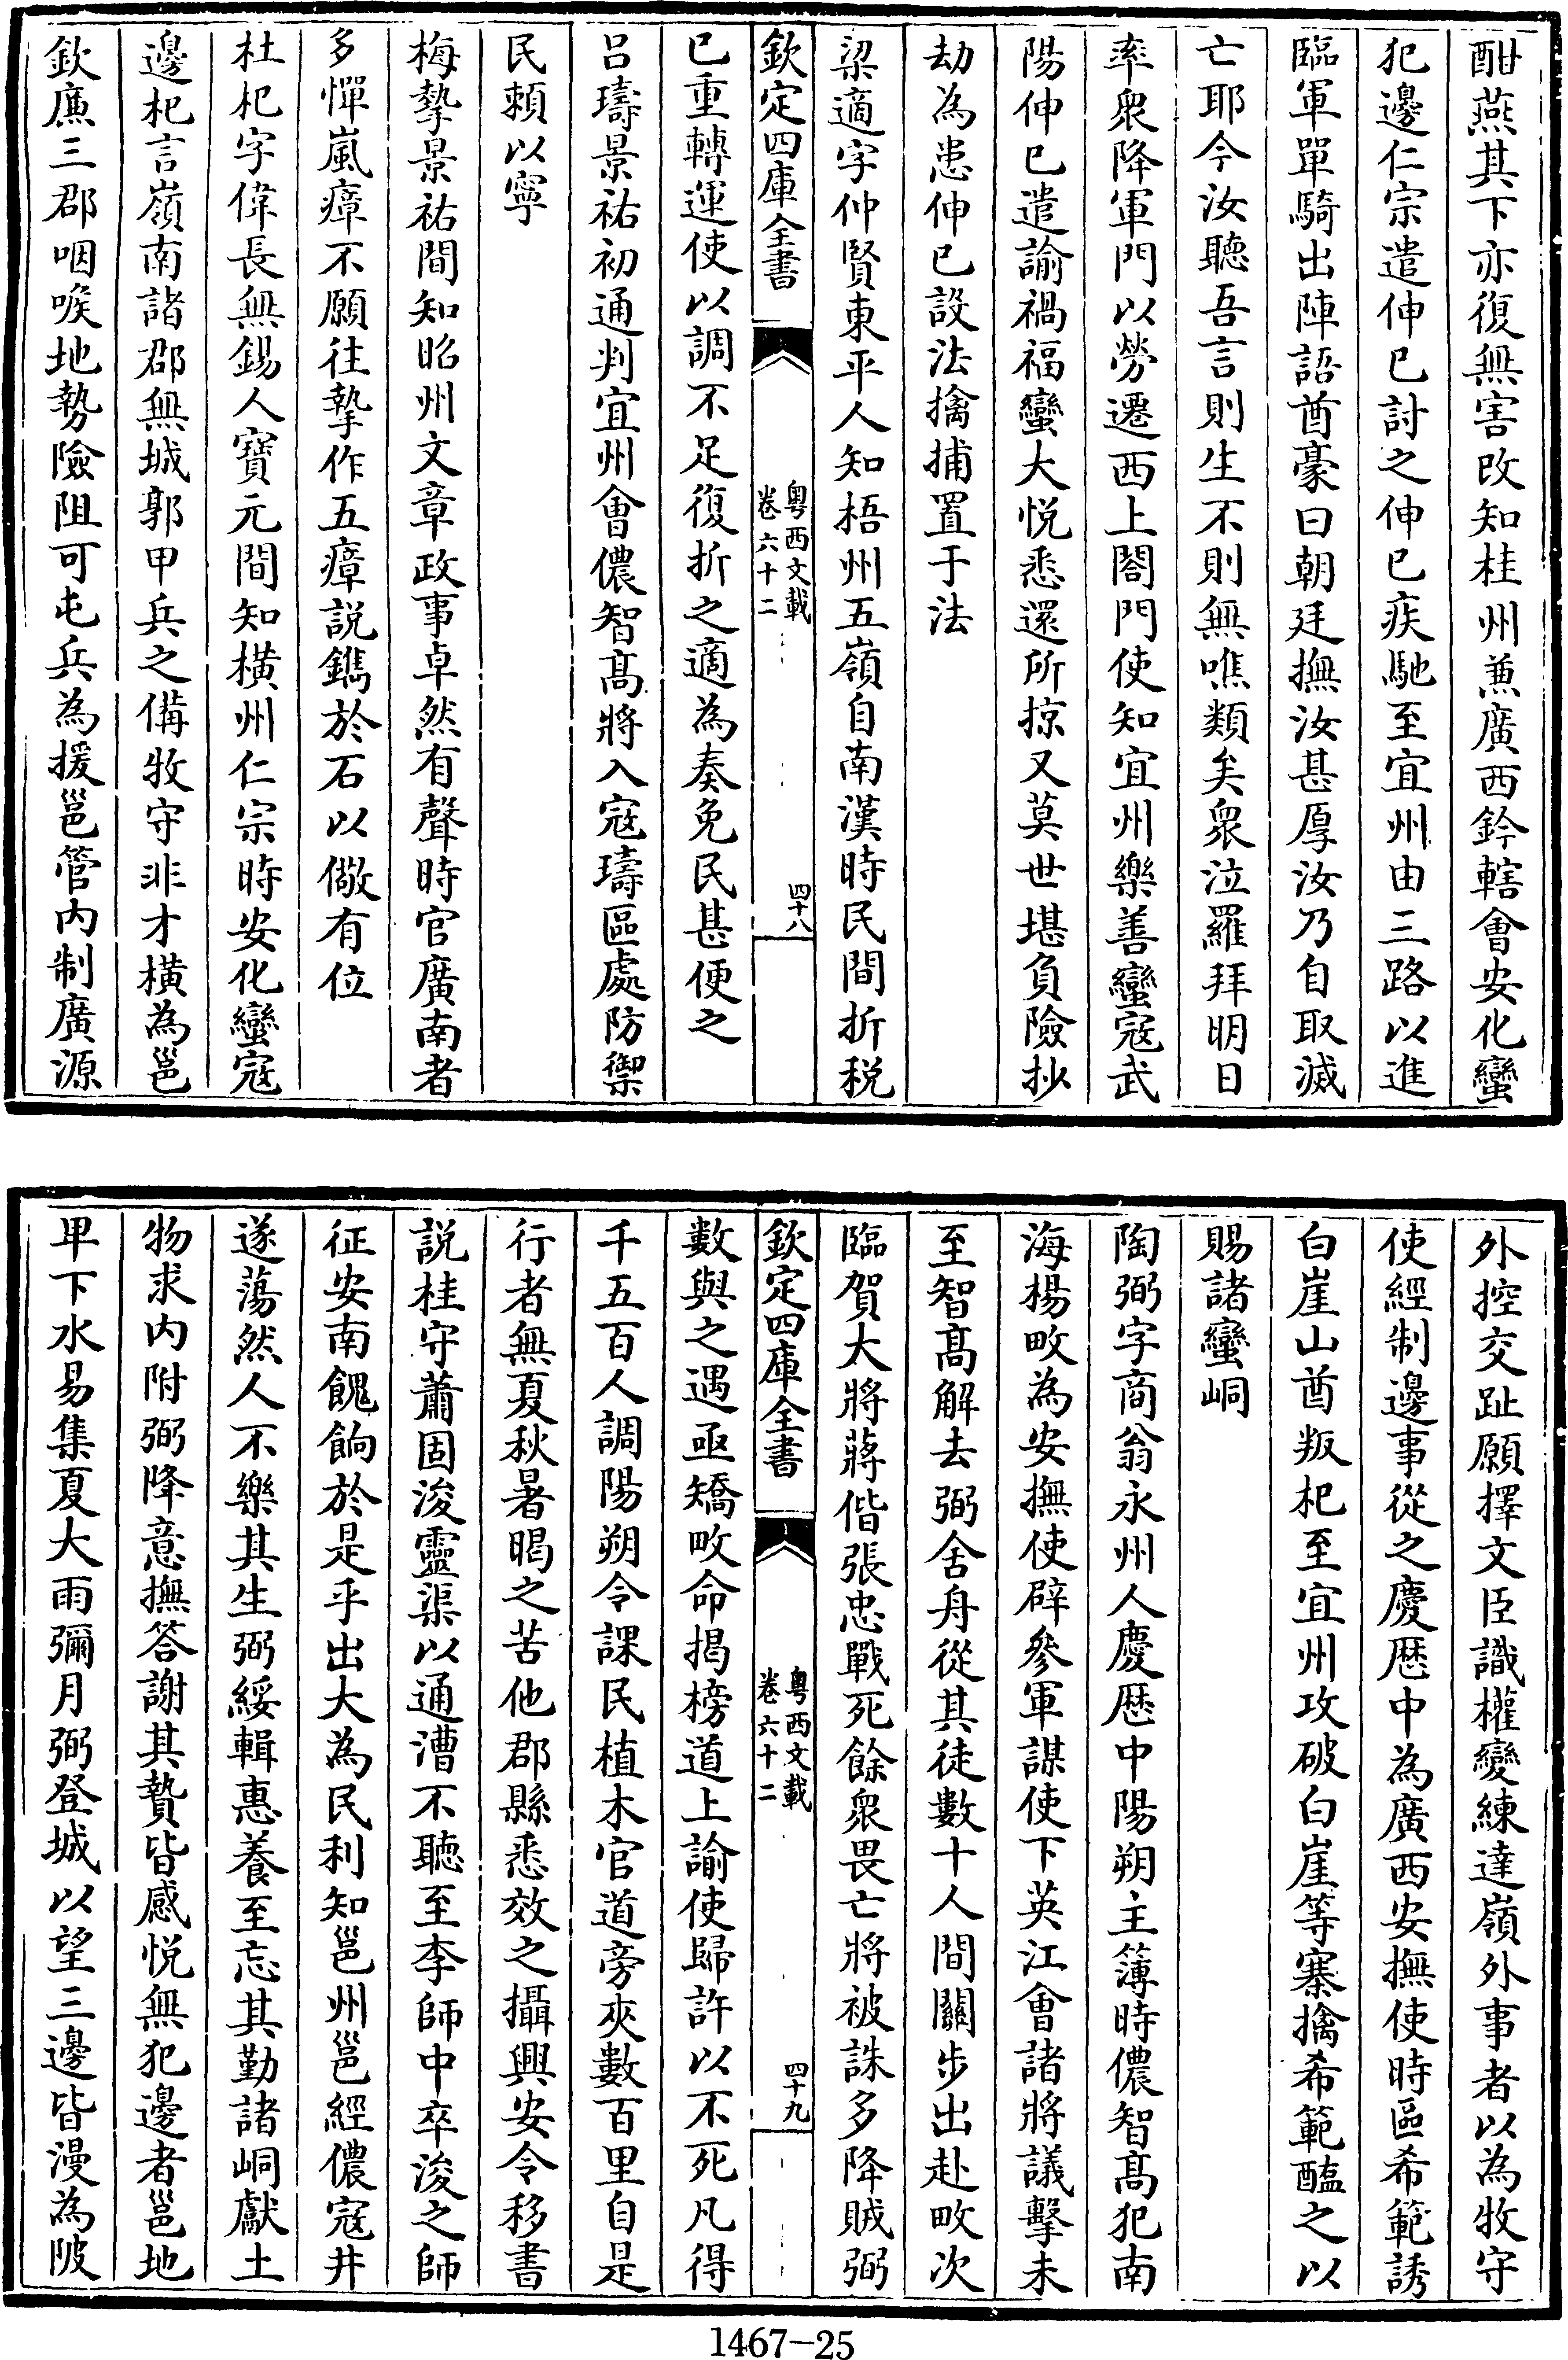 酣燕其下亦復無害改知桂州兼廣西鈐轄會安化蠻
犯邊仁宗遣伸已討之伸已疾馳至宜州由三路以進
臨軍單騎出陣語酋豪曰朝廷撫汝甚厚汝乃自取滅
亡耶今汝聽吾言則生不則無噍類矣衆泣羅拜明日
率衆降軍門以勞遷西上閤門使知宜州樂善蠻寇武
陽伸已遣諭禍福蠻大悦悉還所掠又莫世堪負險抄
劫為患伸已設法擒捕置于法
梁適字仲賢東平人知梧州五嶺自南漢時民間折税
欽定四庫全書
粤西文載
卷六十二
四十八
已重轉運使以調不足復折之適為奏免民甚便之
吕璹景祐初通判宜州會儂智髙將入寇璹區處防禦
民頼以寧
梅摯景祐間知昭州文章政事卓然有聲時官廣南者
多憚嵐瘴不願往摯作五瘴説鐫於石以儆有位
杜杞字偉長無錫人寳元間知横州仁宗時安化蠻寇
邊杞言嶺南諸郡無城郭甲兵之備牧守非才横為邕
欽廉三郡咽喉地勢險阻可屯兵為援邕管内制廣源
外控交趾願擇文臣識權變練達嶺外事者以為牧守
使經制邊事從之慶厯中為廣西安撫使時區希範誘
白崖山酋叛杞至宜州攻破白崖等寨擒希範醢之以
賜諸蠻峒
陶弼字商翁永州人慶厯中陽朔主簿時儂智髙犯南
海楊畋為安撫使辟參軍謀使下英江會諸將議擊未
至智髙解去弼舍舟從其徒數十人間關步出赴畋次
臨賀大將蔣偕張忠戰死餘衆畏亡將被誅多降賊弼
欽定四庫全書
粤西文載
卷六十二
四十九
數與之遇亟矯畋命揭榜道上諭使歸許以不死凡得
千五百人調陽朔令課民植木官道旁夾數百里自是
行者無夏秋暑暍之苦他郡縣悉效之攝興安令移書
説桂守蕭固浚靈渠以通漕不聽至李師中卒浚之師
征安南餽餉於是乎出大為民利知邕州邕經儂寇井
遂蕩然人不樂其生弼綏輯惠養至忘其勤諸峒獻土
物求内附弼降意撫答謝其贄皆感悦無犯邊者邕地
卑下水易集夏大雨彌月弼登城以望三邊皆漫為陂
1467-25